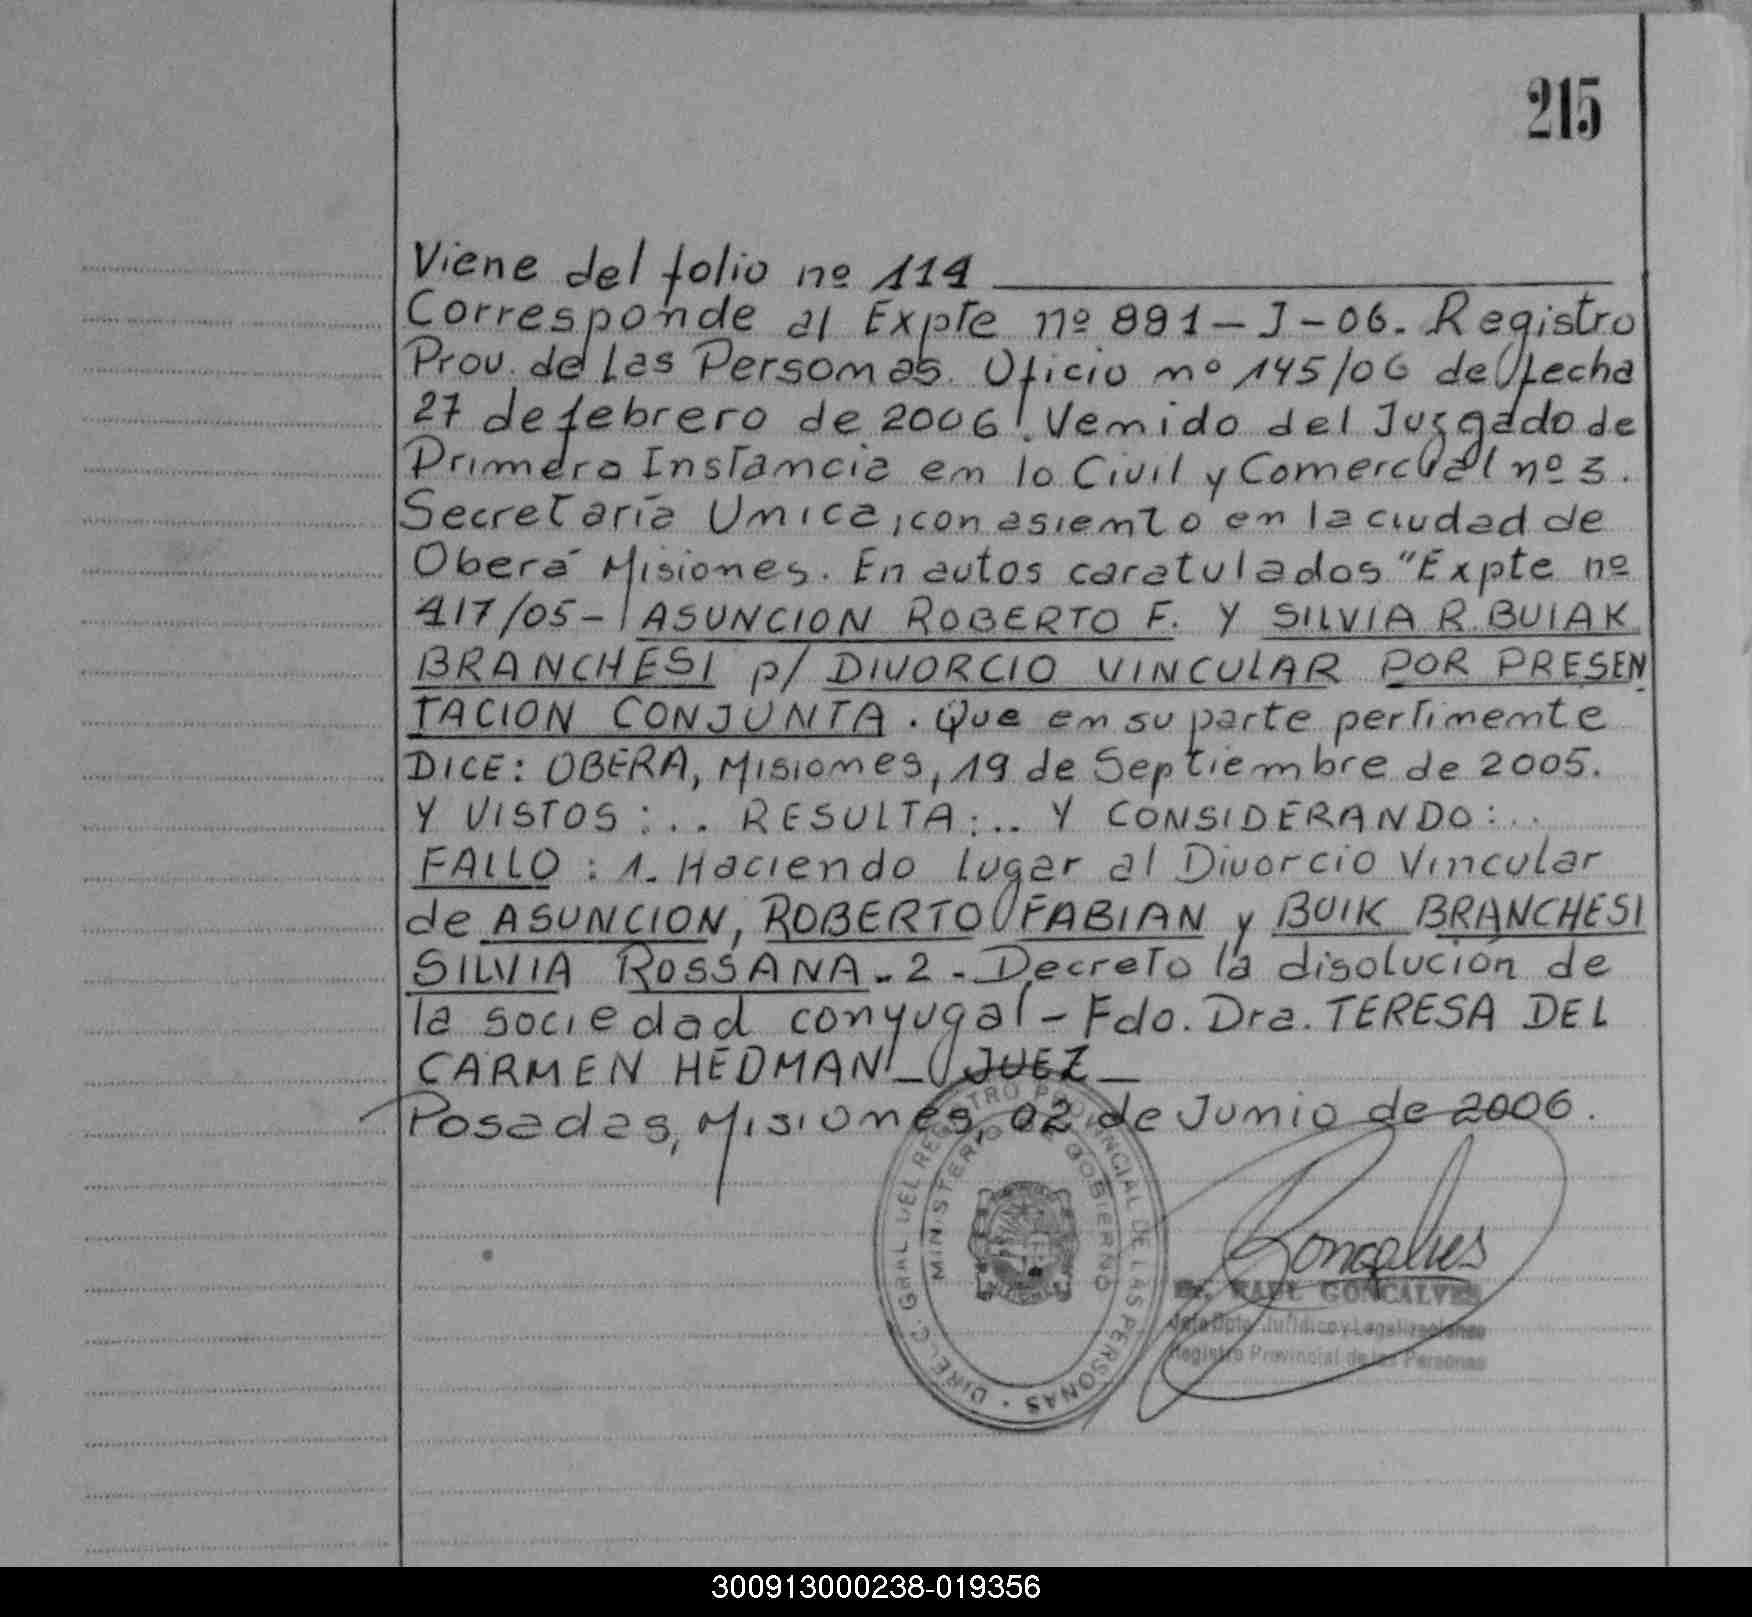 215
Viene del folio nº 114
Corresponde al Expte nº 891-J-06. Registro
Prov. de las Personas. Oficio nº 145/06 de fecha
27 de febrero de 2006. Venido del Juzgado de
Primera Instancia en lo Civil y Comercial nº 3.
Secretaría Unica, con asiento en la ciudad de
Oberá Misiones. En autos caratulados "Expte nº
417/05- ASUNCION ROBERTO F. Y SILVIA R. BUIAK
BRANCHESI p/ DIVORCIO VINCULAR POR PRESEN
TACION CONJUNTA. Que en su parte pertinente
DICE: OBERA, Misiones, 19 de Septiembre de 2005.
Y VISTOS:.. RESULTA:.. Y CONSIDERANDO:..
FALLO: 1. Haciendo lugar al Divorcio Vincular
de ASUNCION, ROBERTO FABIAN y BUIK BRANCHESI
SILVIA ROSSANA. 2- Decreto la disolución de
la sociedad conyugal - Fdo. Dra. TERESA DEL
CARMEN HEDMAN - JUEZ -
Posadas, Misiones, 02 de Junio de 2006.
DIREC. GRAL DEL REGISTRO PROVINCIAL DE LAS PERSONAS
MINISTERIO DE GOBIERNO
Goncalves
Dr. RAUL GONCALVES
Jefe Dpto. Jurídico y Legalizaciones
Registro Provincial de las Personas
300913000238-019356